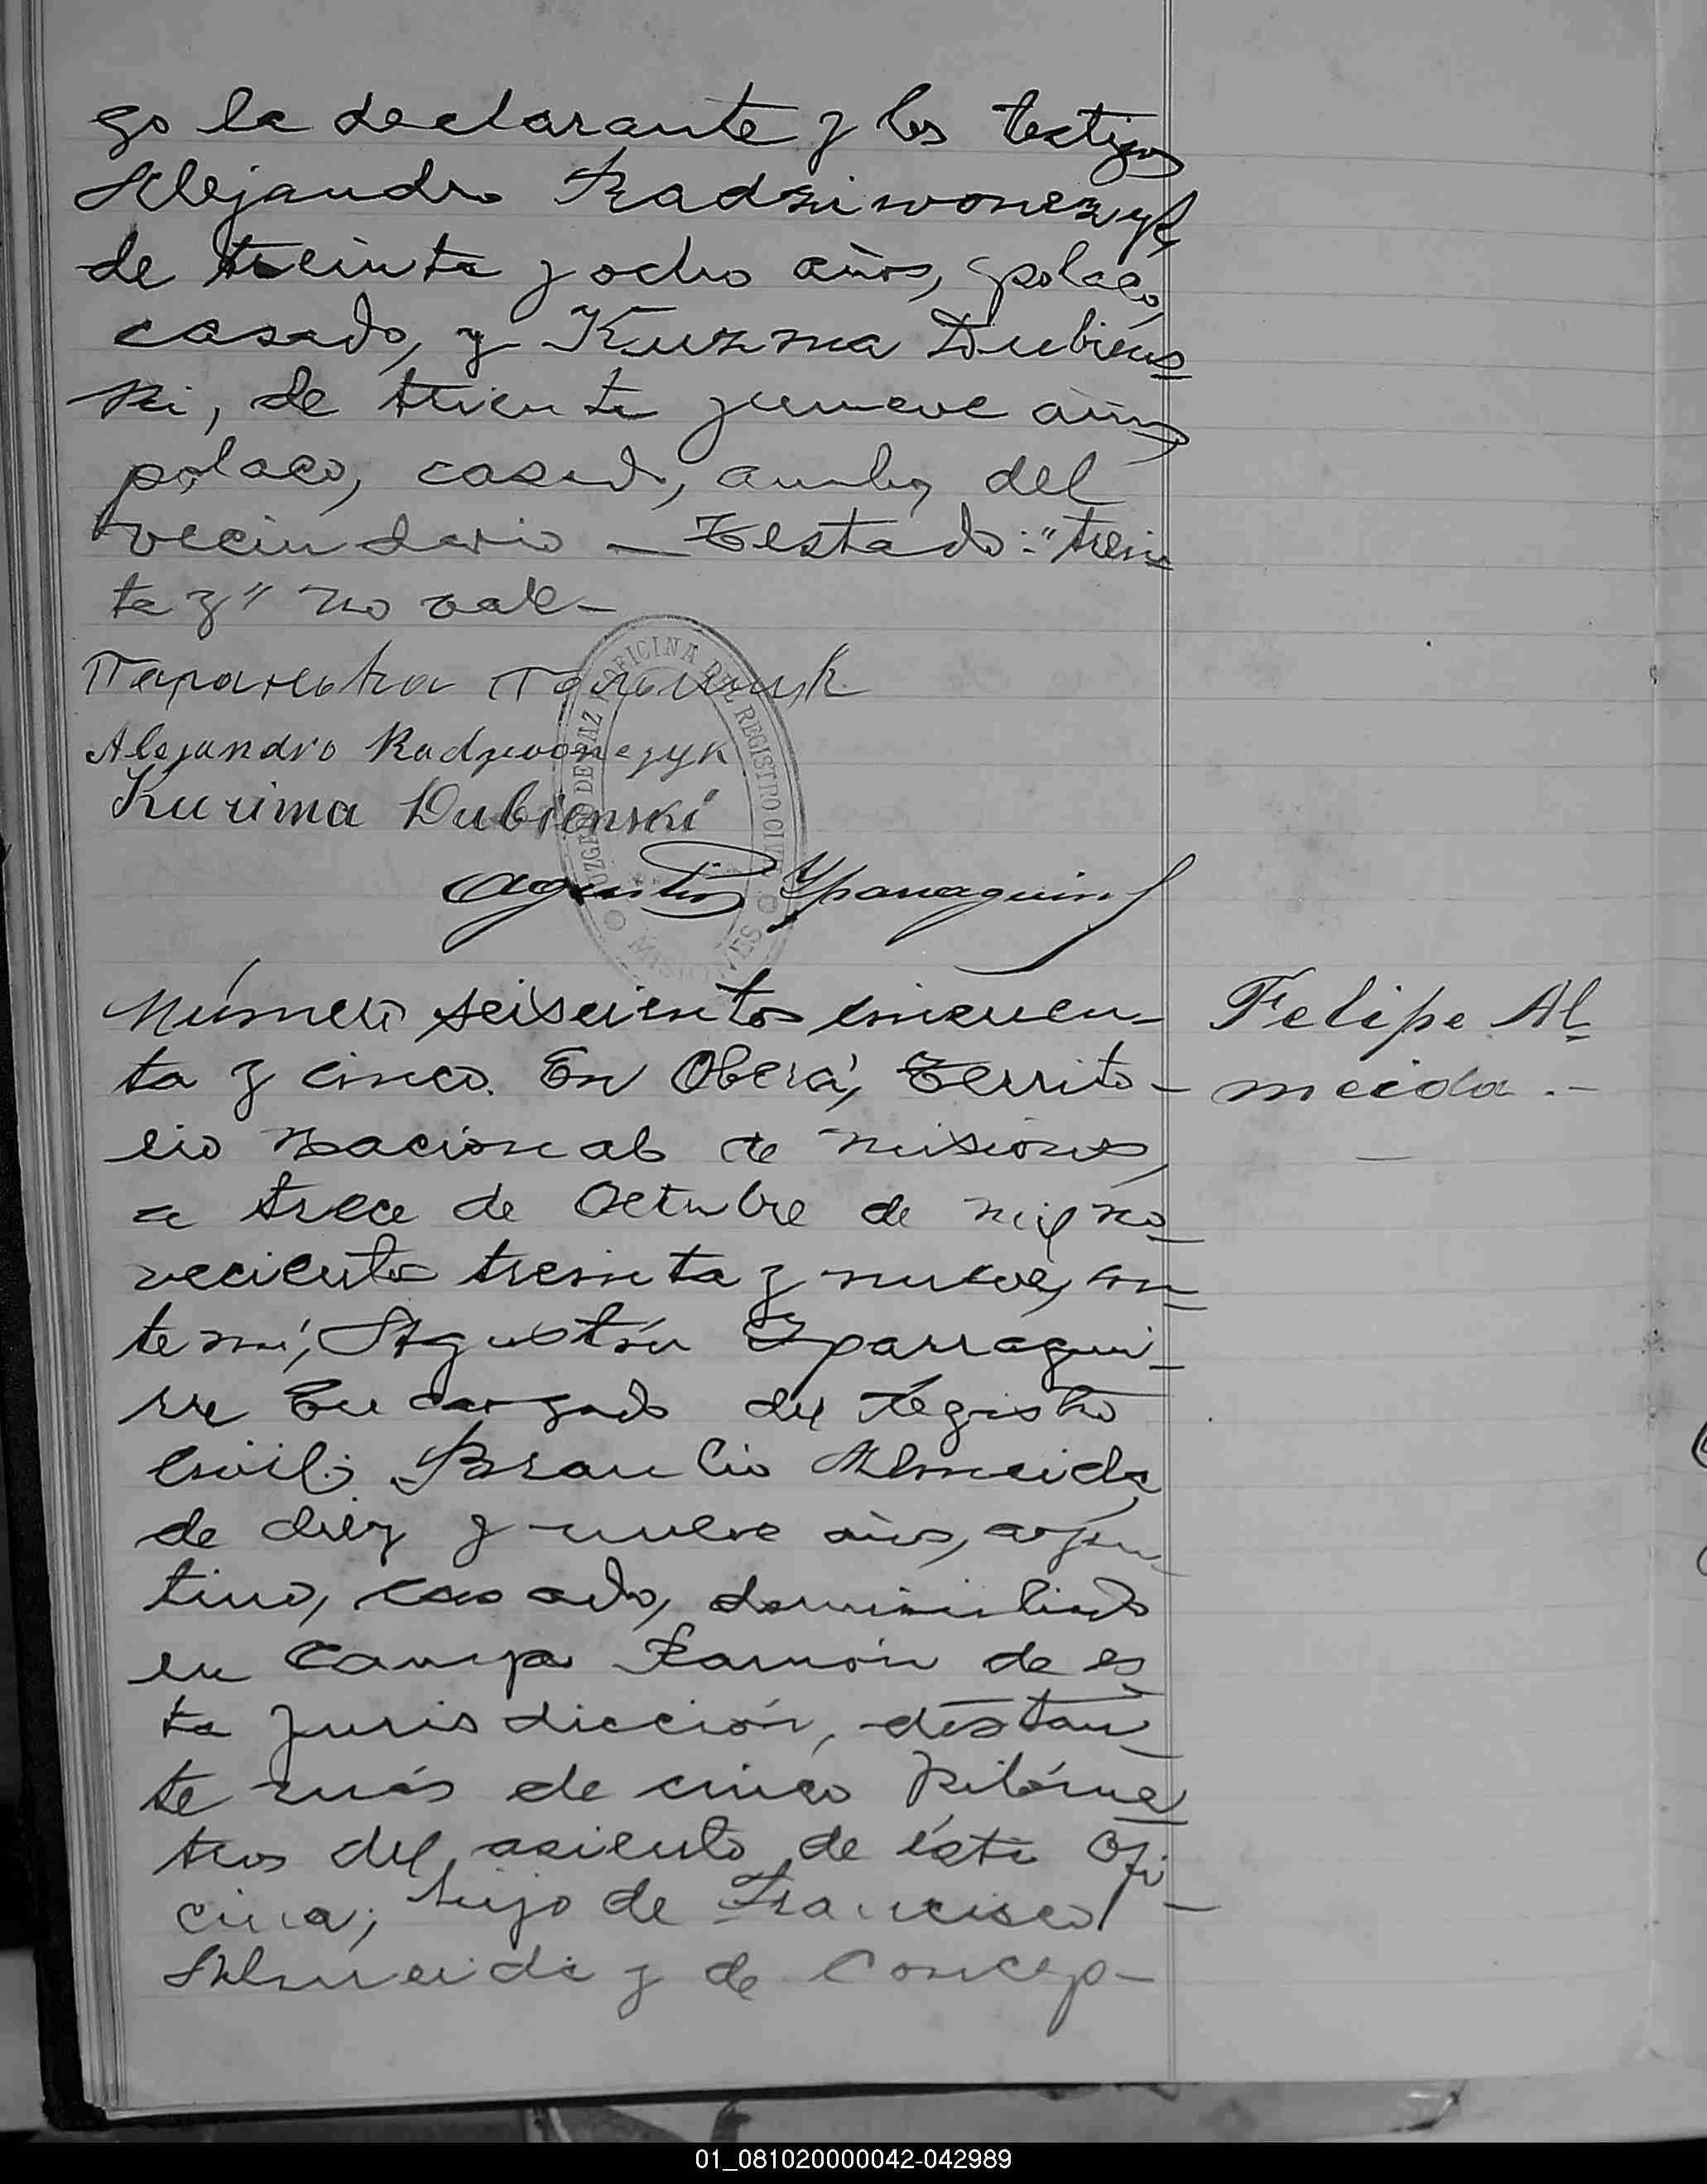 go la declarante y los testigos
Alejandro Radziwonczyk,
de treinta y ocho años, polaco,
casado, y Kuzma Dubiens-
ki, de treinta y nueve años
polaco, casado, ambos del
vecindario — Testado: "trein-
ta y" no vale —
Alejandro Radziwonczyk
Kuzima Dubienski
JUZGADO DE PAZ Y OFICINA DEL REGISTRO CIVIL
MISIONES
Agustín Yparraguirre
Número seiscientos cincuen-
ta y cinco. En Oberá, Territo-
rio Nacional de Misiones,
a trece de Octubre de mil no-
vecientos treinta y nueve, an-
te mí, Agustín Yparragui-
rre Encargado del Registro
Civil; Braulio Almeida,
de diez y nueve años, argen-
tino, casado, domiciliado
en Campo Ramón de es-
ta jurisdicción, distan-
te más de cinco kilóme-
tros del asiento de ésta Ofi-
cina; hijo de Francisco
Almeida y de Concep-
Felipe Al-
meida.-
01_081020000042-042989